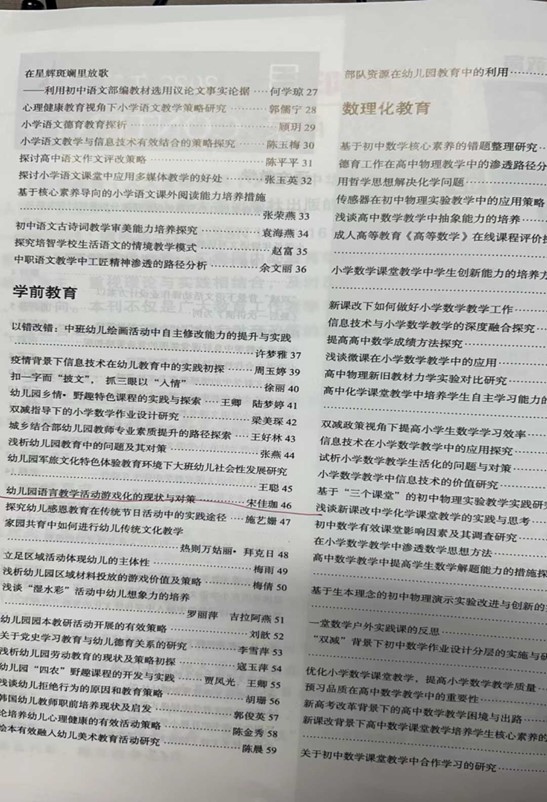 在星辉斑斓里放歌
——利用初中语文部编教材选用议论文事实论据……何学琼 27
心理健康教育视角下小学语文教学策略研究……郭儒宁 28
小学语文德育教育探析……顾玥 29
小学语文教学与信息技术有效结合的策略探究……陈玉梅 30
探讨高中语文作文评改策略……陈平平 31
探讨小学语文课堂中应用多媒体教学的好处……张玉英 32
基于核心素养导向的小学语文课外阅读能力培养措施
……张荣燕 33
初中语文古诗词教学审美能力培养探究……袁海燕 34
探究培智学校生活语文的情境教学模式……赵富 35
中职语文教学中工匠精神渗透的路径分析……余文丽 36
学前教育
以错改错：中班幼儿绘画活动中自主修改能力的提升与实践
……许梦雅 37
疫情背景下信息技术在幼儿教育中的实践初探……周玉婷 39
扣一字而“披文”，抓三眼以“入情”……徐丽 40
幼儿园乡情·野趣特色课程的实践与探索……王卿 陆梦婷 41
双减指导下的小学数学作业设计研究……梁美琛 42
城乡结合部幼儿教师专业素质提升的路径探索……王好林 43
浅析幼儿园教育中的问题及其对策……张燕 44
幼儿园军旅文化特色体验教育环境下大班幼儿社会性发展研究
……王聪 45
幼儿园语言教学活动游戏化的现状与对策……宋佳珈 46
探究幼儿感恩教育在传统节日活动中的实践途径……施艺姗 47
家园共育中如何进行幼儿传统文化教学
……热则万姑丽·拜克日 48
立足区域活动体现幼儿的主体性……梅雨 49
浅析幼儿园区域材料投放的游戏价值及策略……梅倩 50
浅谈“湿水彩”活动中幼儿想象力的培养
……罗丽萍 吉拉阿燕 51
幼儿园园本教研活动开展的有效策略……刘歆 52
关于党史学习教育与幼儿德育关系的研究……李雪萍 53
浅析幼儿园劳动教育的现状及策略初探……寇玉萍 54
幼儿园“四农”野趣课程的开发与实践……贾凤光 王卿 55
浅谈幼儿拒绝行为的原因和教育策略……胡珊 56
韩国幼儿教师职前培养现状及启发……郭俊英 57
论培养幼儿心理健康的有效活动策略……陈金秀 58
绘本有效融入幼儿美术教育活动研究……陈晨 59
部队资源在幼儿园教育中的利用……
数理化教育
基于初中数学核心素养的错题整理研究……
德育工作在高中物理教学中的渗透路径分
用哲学思想解决化学问题……
传感器在初中物理实验教学中的应用策略
浅谈高中数学教学中抽象能力的培养……
成人高等教育《高等数学》在线课程评价
小学数学课堂教学中学生创新能力的培养
新课改下如何做好小学数学教学工作……
信息技术与小学数学教学的深度融合探究……
提高高中数学成绩方法探究……
浅谈微课在小学数学教学中的应用……
高中物理新旧教材力学实验对比研究……
高中化学课堂教学中培养学生自主学习能力的
双减政策视角下提高小学生数学学习效率……
信息技术在小学数学教学中的应用探究……
试析小学数学教学生活化的问题与对策……
小学数学教学中信息技术的价值研究……
基于“三个课堂”的初中物理实验教学实践研究
浅谈新课改中学化学课堂教学的实践与思考……
初中数学有效课堂影响因素及其调查研究……
在小学数学教学中渗透数学思想方法……
高中数学教学中提高学生数学解题能力的措施探
基于生本理念的初中物理演示实验改进与创新的
一堂数学户外实践课的反思……
“双减”背景下初中数学作业设计分层的实施与研
优化小学数学课堂教学，提高小学数学教学质量……
预习品质在高中数学教学中的重要性……
新高考改革背景下的高中数学教学困境与出路……
新课改背景下高中数学课堂教学培养学生核心素养的
关于初中数学课堂教学中合作学习的研究……